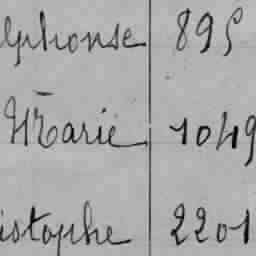 lphonse 895
Marie 1049
istophe 2201